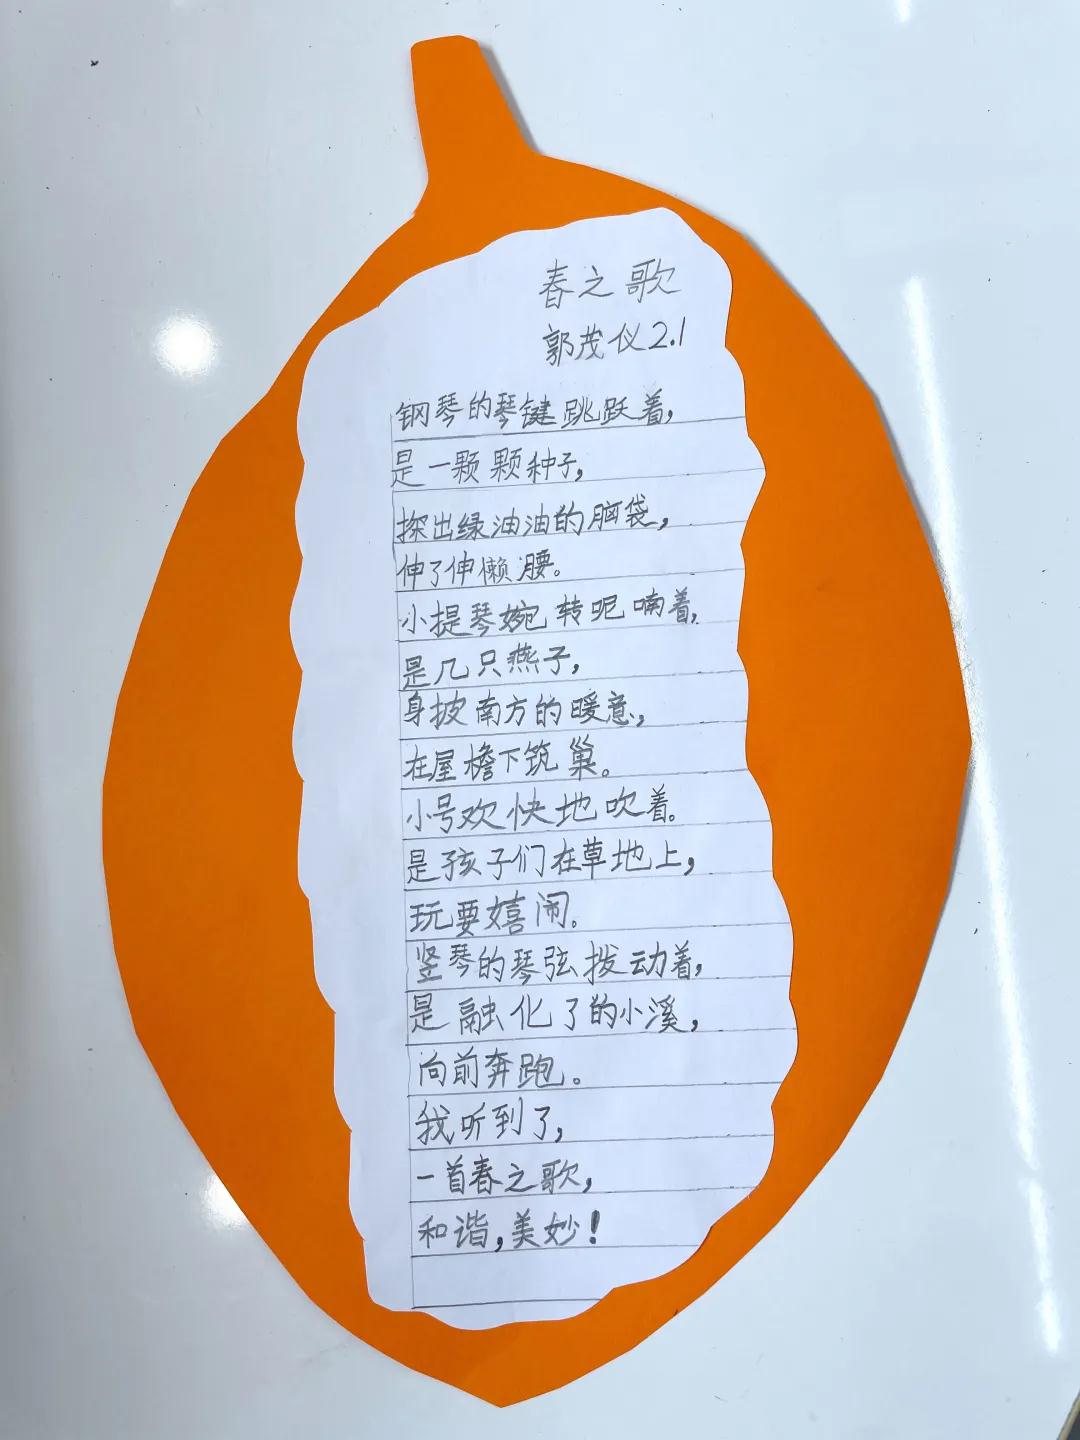 春之歌
郭茂仪2.1
钢琴的琴键跳跃着,
是一颗颗种子,
探出绿油油的脑袋,
伸了伸懒腰。
小提琴婉转呢喃着,
是几只燕子,
身披南方的暖意,
在屋檐下筑巢。
小号欢快地吹着。
是孩子们在草地上,
玩耍嬉闹。
竖琴的琴弦拨动着,
是融化了的小溪,
向前奔跑。
我听到了,
一首春之歌,
和谐,美妙!